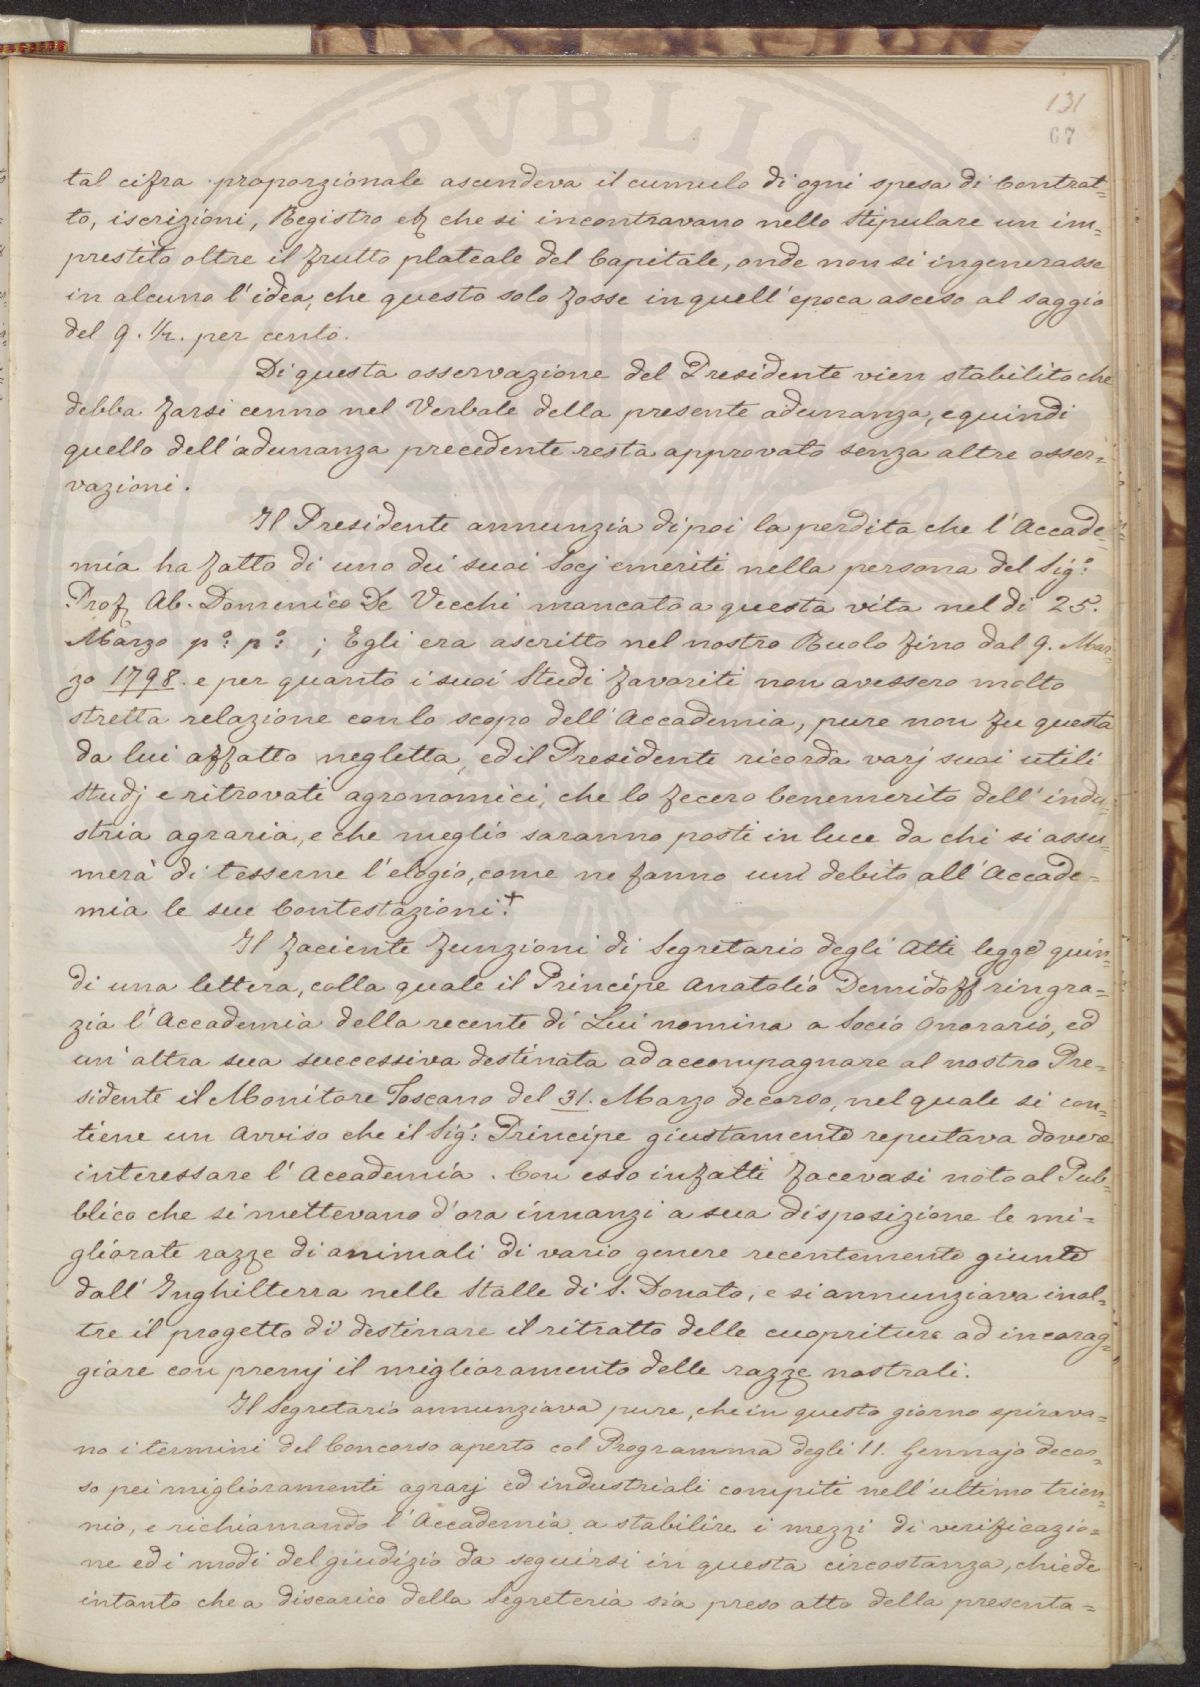 131
67
tal cifra proporzionale ascendeva il cumulo di ogni spesa di Contrat=
to, iscrizioni, Registro etc che si incontravano nello stipulare un im=
prestito oltre il frutto plateale del Capitale, onde non si ingenerasse
in alcuno l'idea, che questo solo fosse in quell'epoca asceso al saggio
del 9. 1/2. per cento.
Di questa osservazione del Presidente vien stabilito che
debba farsi cenno nel Verbale della presente adunanza, e quindi
quello dell'adunanza precedente resta approvato senza altre osser=
vazioni.
Il Presidente annunzia di poi la perdita che l'Accade=
mia ha fatto di uno dei suoi Socj emeriti nella persona del Sig.º
Prof. Ab. Domenico De Vecchi mancato a questa vita nel dì 25.
Marzo pº: pº: ; Egli era ascritto nel nostro Ruolo fino dal 9. Mar=
zo 1798. e per quanto i suoi Studi favoriti non avessero molto
stretta relazione con lo scopo dell'Accademia, pure non fu questa
da lui affatto negletta, ed il Presidente ricorda varj suoi utili
studj e ritrovati agronomici, che lo fecero benemerito dell'indu=
stria agraria, e che meglio saranno posti in luce da chi si assu=
merà di tesserne l'elogio, come ne fanno un debito all'Accade=
mia le sue Contestazioni.+
Il facente funzioni di Segretario degli Atti legge quin=
di una lettera, colla quale il Principe Anatolio Demidoff ringra=
zia l'Accademia della recente di Lui nomina a Socio Onorario, ed
un'altra sua successiva destinata ad accompagnare al nostro Pre=
sidente il Monitore Toscano del 31. Marzo decorso, nel quale si con=
tiene un Avviso che il Sig.r Principe giustamente reputava dovere
interessare l'Accademia. Con esso infatti facevasi noto al Pub=
blico che si mettevano d'ora innanzi a sua disposizione le mi=
gliorate razze di animali di vario genere recentemente giunte
dall'Inghilterra nelle Stalle di S. Donato, e si annunziava inol=
tre il progetto di destinare il ritratto delle cuopriture ad incorag=
giare con premj il miglioramento delle razze nostrali.
Il Segretario annunziava pure, che in questo giorno spirava=
no i termini del Concorso aperto col Programma degli 11. Gennajo decor=
so pei miglioramenti agrarj ed industriali compiti nell'ultimo trien=
nio, e richiamando l'Accademia a stabilire i mezzi di verificazio=
ne ed i modi del giudizio da seguirsi in questa circostanza, chiede
intanto che a discarico della Segreteria sia preso atto della presenta=